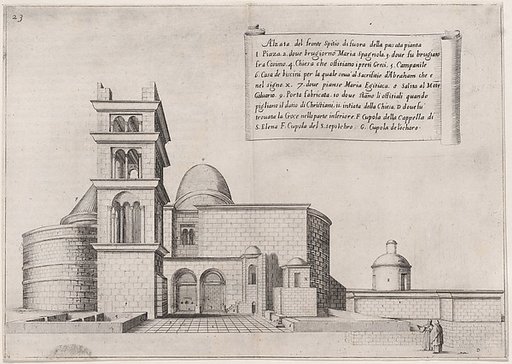 23
Alzata del fronte Spitio di fuora della passata pianta
1 Piaza. 2. dove brugiorno Maria Spagnola. 3. dove fu brugiato
fra Cosimo. 4. Chiesa che offitiano i preti Greci. 5. Campanile
6. Casa de per la quale si va al Sacrifitio d'Abraham che e
nel signo. X. 7. dove pianse Maria Egitiaca. 8 Salita al Mote
Calvario. 9. Porta fabricata. 10 dove stano l'offitiali quando
pigliano il datio di Christiani, 11. intrata della Chiesa. D dove fu
trovata la Croce nella parte inferiore. F Cupola della Cappella di
S. Elena F. Cupola del S. sepolchro. G. Cupola de